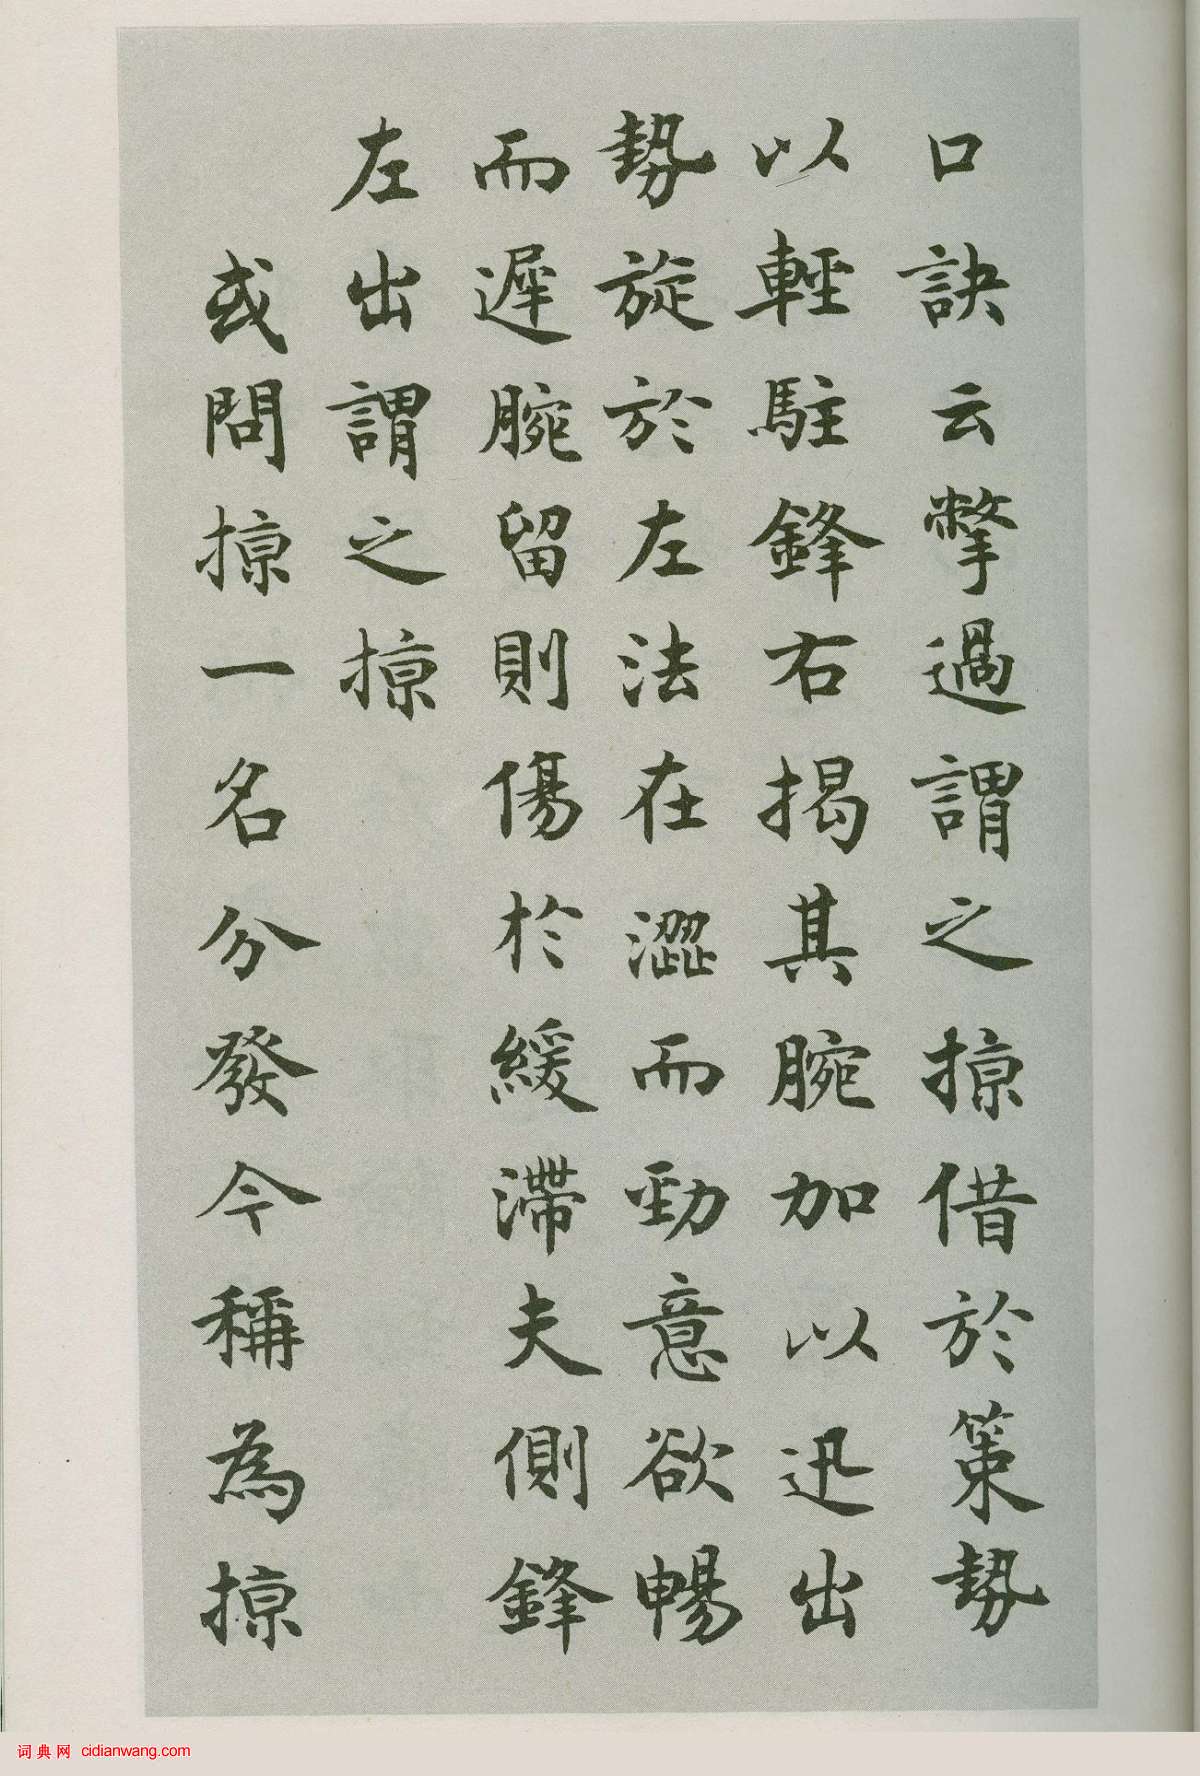 口訣云撆過謂之掠借於策勢
以輕駐鋒右揭其腕加以迅出
勢旋於左法在澀而勁意欲暢
而遲腕留則傷於緩滯夫側鋒
左出謂之掠
或問掠一名分發今稱為掠
词典网 cidianwang.com